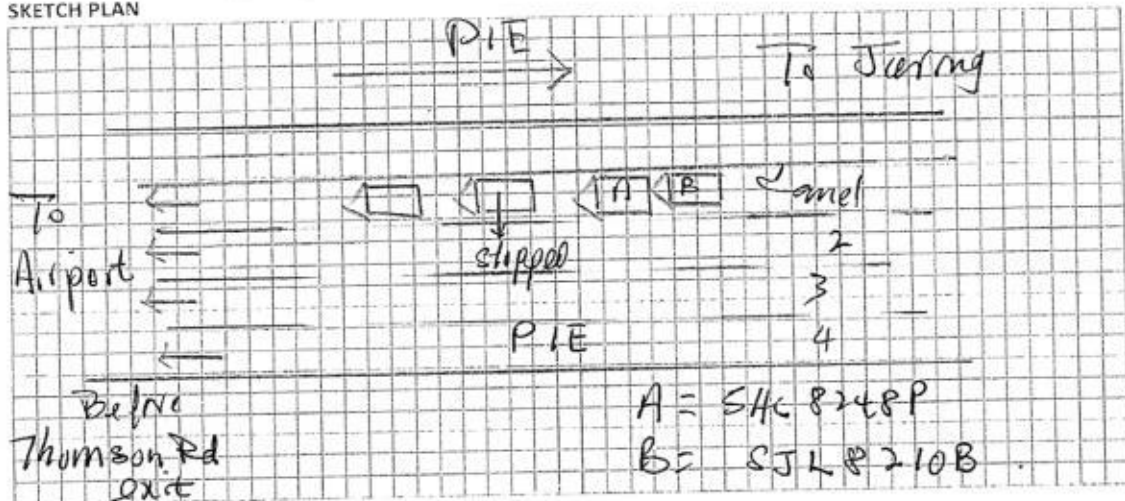 SKETCH PLAN
PIE
To Jurong
To
Airport
A B Lane 1
stopped
2
3
PIE
4
Before
Thomson Rd
exit
A = SHC 8248P
B = SJL 8210B.